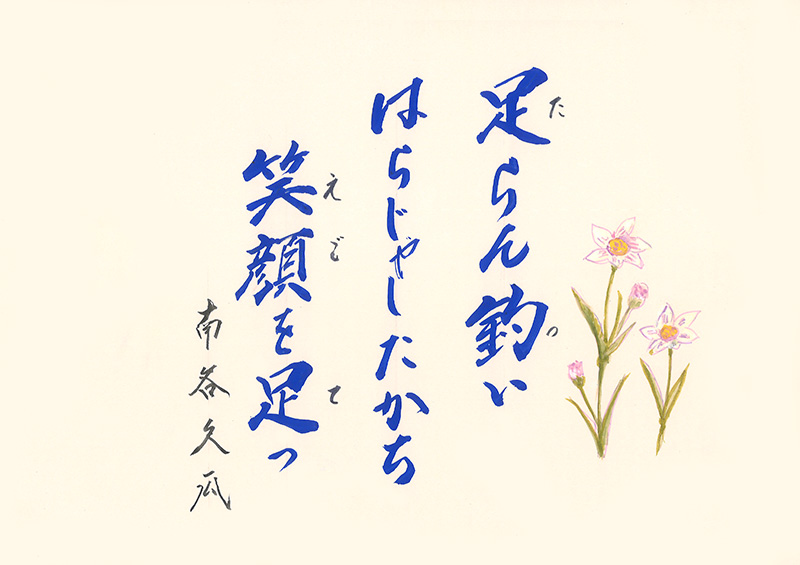 足らん釣い
た
つ
はらじゃしたかち
笑顔を足っ
えご
て
南谷久瓜